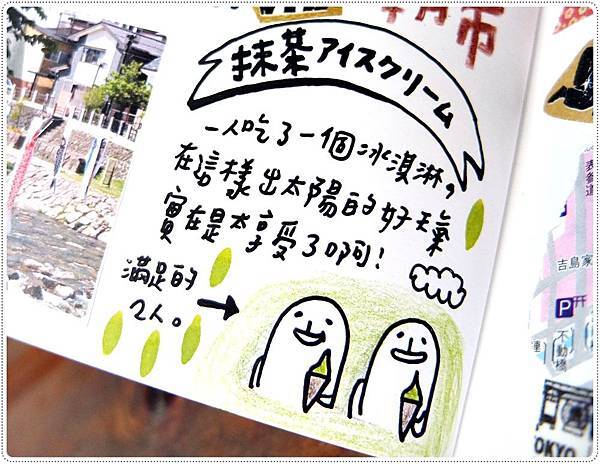 朝市
抹茶アイスクリーム
一人吃了一個冰淇淋,
在這樣出太陽的好天氣
實在是太享受了啊!
滿足的
2人。
表参道
吉島家
P
不動橋
連
TOKYO